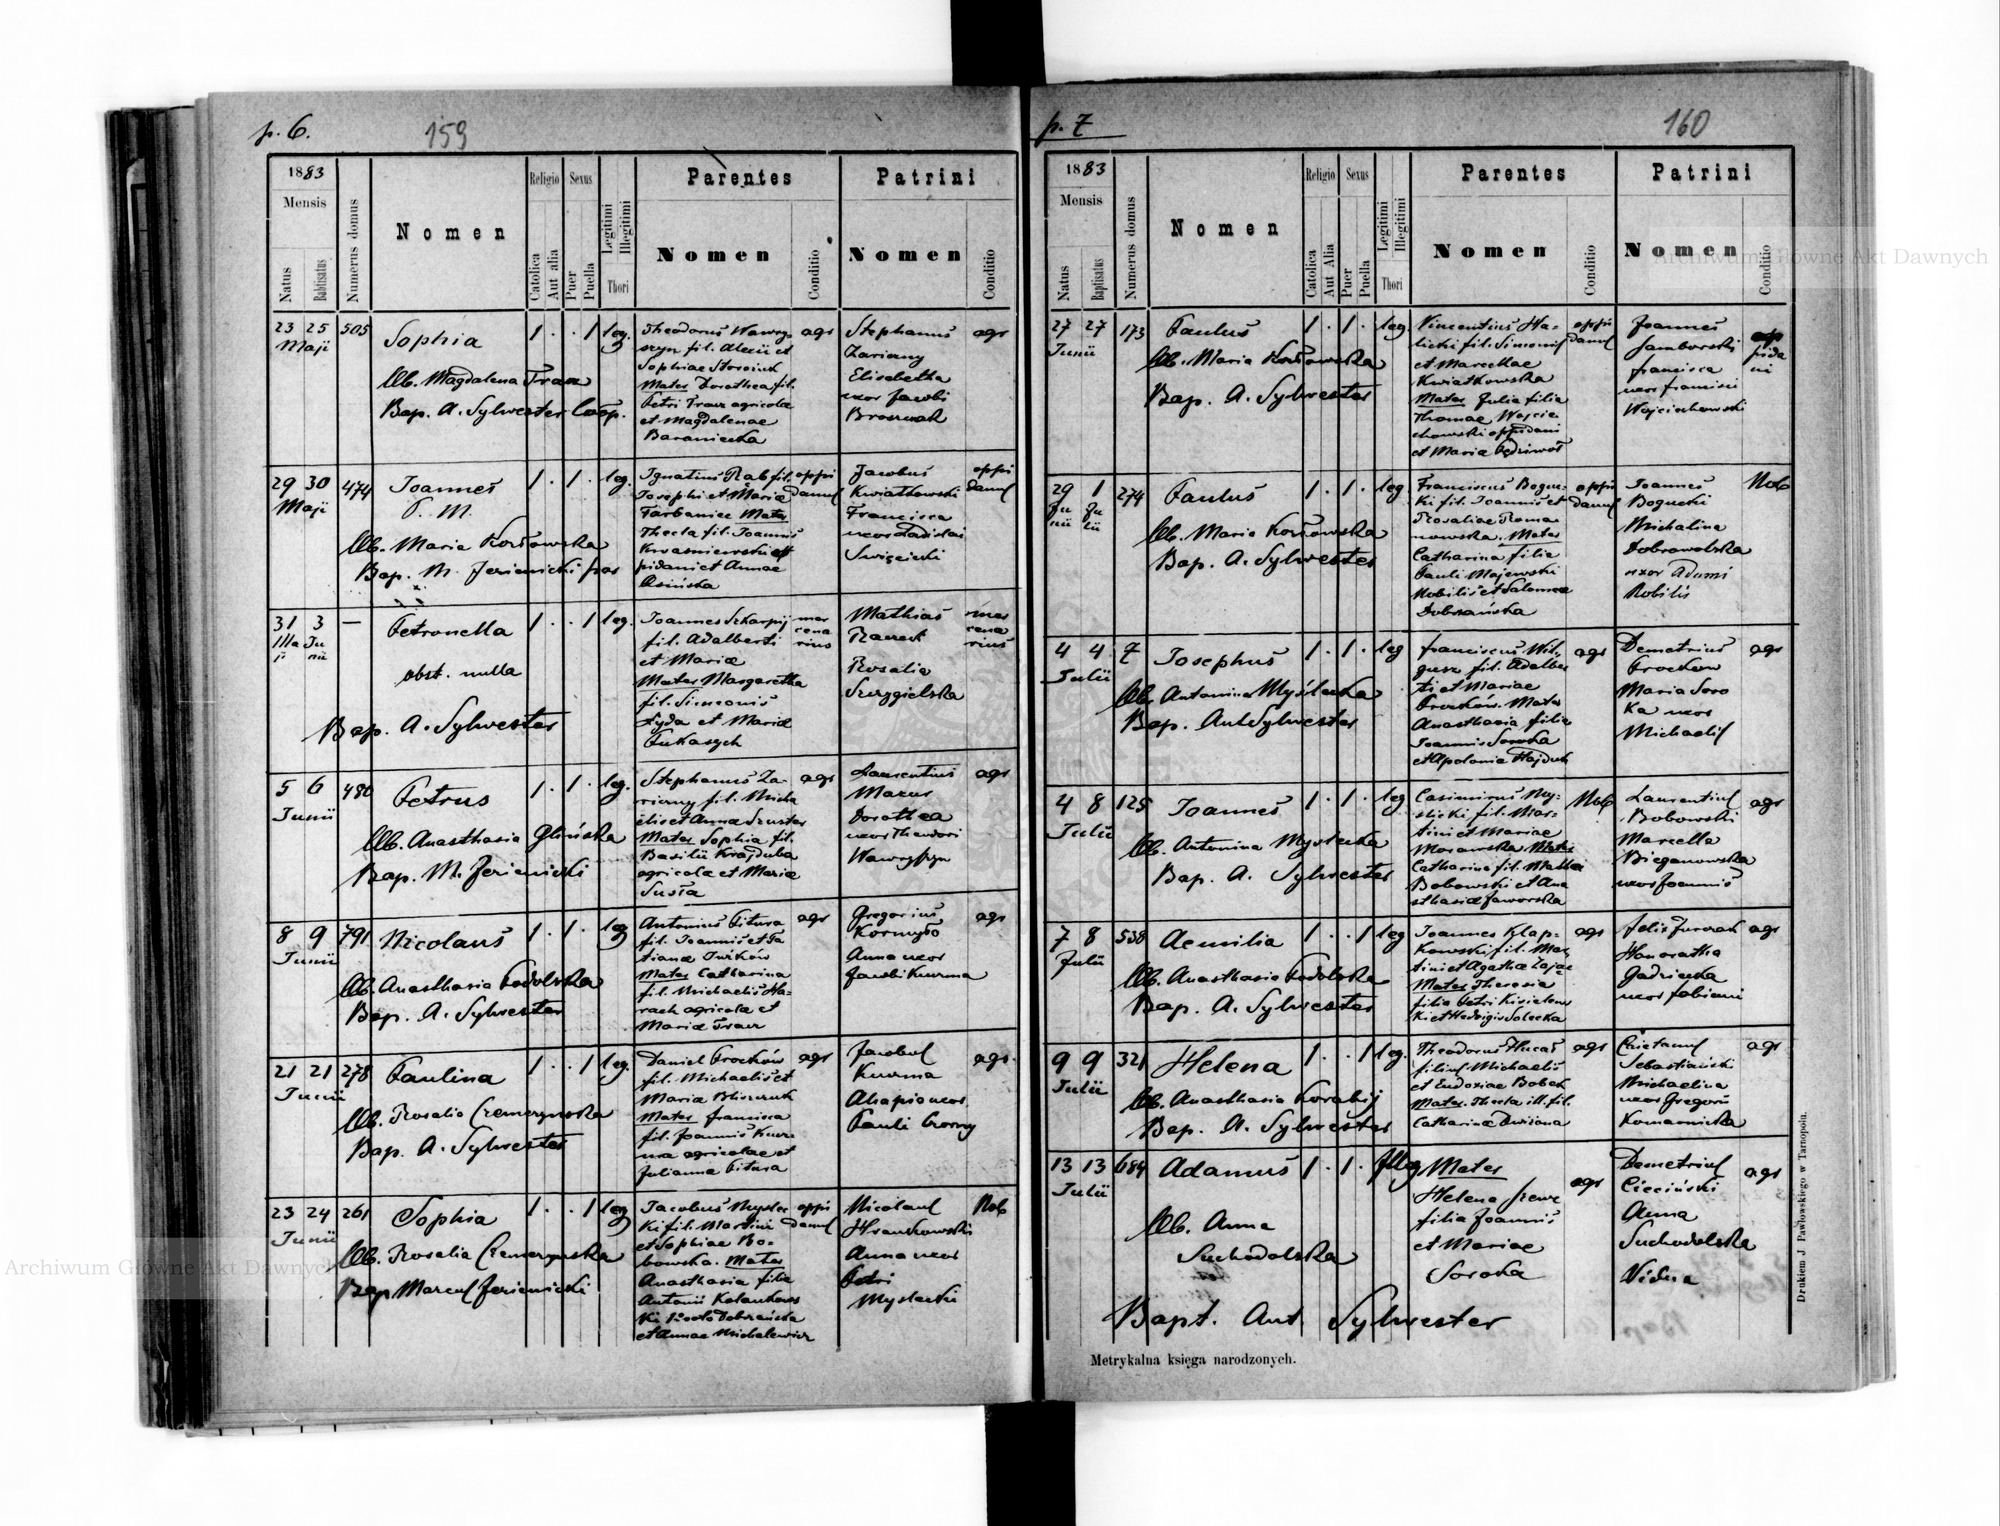 p. 6.
159
1883
Mensis
Natus
Babtisatus
Numerus domus
Nomen
Religio
Catolica
Aut alia
Sexus
Puer
Puella
Legitimi
Illegitimi
Thori
Parentes
Nomen
Conditio
Patrini
Nomen
Conditio
23 25 505
Maji
Sophia
1 . . 1 leg.
Ob. Magdalena Tracz
Bap. A. Sylwester Coop.
Theodorus Wawry-
szyn fil. Alexii et
Sophiae
Mater Dorothea fil.
Petri Tracz agricolae
et Magdalenae
Baraniecka
agr
Stephanus
Zarizny
Elisabetha
uxor Jacobi
agr
29 30 474
Maji
Joannes
P. M.
1 . 1 . leg.
Ob. Maria Korsowska
Bap. M. Jezienicki par
Ignatius Rab fil.
Josephi et Mariae
Mater
Thecla fil. Joannis
Kwasniewski op
pidani et Annae
Osińska
oppi
danus
Jacobus
Kwiatkowski
Francisca
uxor Ladislai
Święcicki
oppi
danus
31 3 —
Maji Junii
Petronella
1 . . 1 leg.
obst. nulla
Bap. A. Sylwester
Joannes Szkarpij
fil. Adalberti
et Mariae
Mater Margaretha
fil. Simeonis
Zyda et Mariae
mer
cena
rius
Mathias
Rosalia
Szczygielska
mer
cena
rius
5 6 480
Junii
Petrus
1 . 1 . leg.
Ob. Anasthasia Glińska
Bap. M. Jezienicki
Stephanus Za-
rizny fil. Micha
elis et Annae Szuster
Mater Sophia fil.
Basilii Krajduba
agricolae et Mariae
Susła
agr
Laurentius
Mazur
Dorothea
uxor Theodori
Wawryszyn
agr
8 9 791
Junii
Nicolaus
1 . 1 . leg
Ob. Anasthasia Podolska
Bap. A. Sylwester
Antonius Pitura
fil. Joannis et Ta
tianae
Mater Catharina
fil. Michaelis Ha-
rach agricolae et
Mariae Tracz
agr
Gregorius
Kormyło
Anna uxor
Jacobi Kuzma
agr
21 21 278
Junii
Paulina
1 . . 1 leg.
Ob. Rosalia Czemerynska
Bap. A. Sylwester
Daniel Prockow
fil. Michaelis et
Mariae
Mater Francisca
fil. Joannis Kuz-
ma agricolae et
Julianna Pitura
agr
Jacobus
Kuzma
Ahapia uxor
Pauli Czorny
agr.
23 24 261
Junii
Sophia
1 . . 1 leg
Ob. Rosalia Czemerynska
Bap Marcus Jezienicki
Jacobus Myslec
ki fil. Martini
et Sophiae Bo-
bowska. Mater
Anasthasia filia
Antonii Kolankows
ki Dobrzańska
et Annae Michalewicz
oppi
danus
Nicolaus
Hrankowski
Anna uxor
Petri
Myslecki
Nob
p. 7
160
1883
Mensis
Natus
Baptisatus
Numerus domus
Nomen
Religio
Catolica
Aut Alia
Sexus
Puer
Puella
Legitimi
Illegitimi
Thori
Parentes
Nomen
Conditio
Patrini
Nomen
Conditio
27 27 173
Junii
Paulus
1 . 1 . leg
Ob. Maria Korsowska
Bap. A. Sylwester
Vincentius Ha-
licki fil. Simonis
et Marcellae
Kwiatkowska
Mater Julia filia
Thomae Wojcie
chowski oppidani
et Mariae Pędziwoł
oppi
danus
Joannes
Samborski
Francisca
uxor Francisci
Wojciechowski
op
pida
ni
29 1 274
Junii Julii
Paulus
1 . 1 . leg
Ob. Maria Korsowska
Bap. A. Sylwester
Franciscus Boguc-
ki fil. Joannis et
Rosaliae Roma
nowska. Mater
Catharina filia
Pauli Majewski
Nobilis et Salomeae
Dobrzańska
oppi
danus
Joannes
Bogucki
Michalina
Dobrowolska
uxor Adami
Nobilis
Nob
4 4 7
Julii
Josephus
1 . 1 . leg
Ob. Antonina Myślecka
Bap. Ant Sylwester
Franciscus Wit-
gusz fil. Adalber
ti et Mariae
Prockow. Mater
Anasthasia filia
Joannis Soroka
et Apolonia Hajduk
agr
Demetrius
Prockow
Maria Soro
ka uxor
Michaelis
agr
4 8 125
Julii
Joannes
1 . 1 . leg
Ob. Antonina Myslecka
Bap. A. Sylwester
Casimirus My-
slicki fil. Mar-
tini et Mariae
Morawska Mater
Catharina fil. Mathiae
Bobowski et Ana
sthasiae Jaworska
Nob
Laurentius
Bobowski
Marcella
Bieganowska
uxor Joannis
agr
7 8 538
Julii
Aemilia
1 . . 1 leg
Ob. Anasthasia Podolska
Bap. A. Sylwester
Joannes Klap-
kowski fil. Mar
tini et Agathae Zając
Mater Theresia
filia Petri Kisielow
ki et Hedvigis Solecka
agr
Felix Juzorak
Honoratha
Gadzicka
uxor Fabiani
agr
9 9 321
Julii
Helena
1 . . 1 leg.
Ob. Anasthasia Korabij
Bap. A. Sylwester
Theodorus Hucał
filius Michaelis
et Eudoxiae Bobek
Mater. Thecla ill. fil.
Catharinae
agr
Caietanus
Sebastiański
Michaelina
uxor Gregorii
Komarnicka
agr
13 13 684
Julii
Adamus
1 . 1 . Illeg
Ob. Anna
Suchodolska
Bapt. Ant. Sylwester
Mater
Helena Szewc
filia Joannis
et Mariae
Soroka
agr
Demetrius
Cieciński
Anna
Suchodolska
Vidua
agr
Metrykalna księga narodzonych.
Drukiem J. Pawłowskiego w Tarnopolu.
Archiwum Główne Akt Dawnych
Archiwum Główne Akt Dawnych